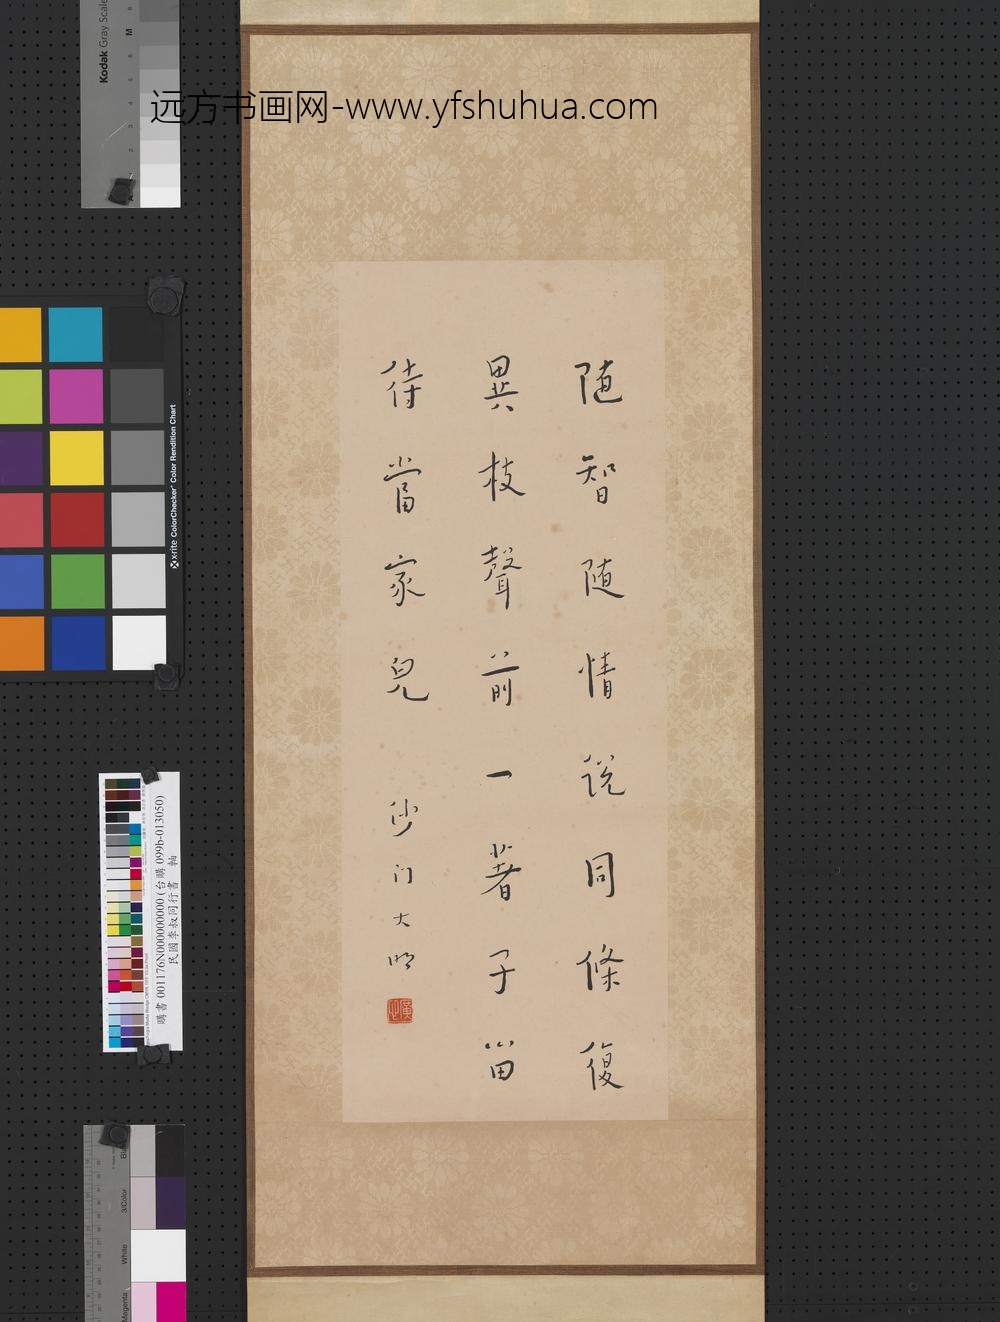 远方书画网-www.yfshuhua.com
随智随情说同條復
異枝聲前一著子留
待當家兒
沙门大明
Kodak Gray Scale
x-rite ColorChecker Color Rendition Chart
購書 001176N000000000 (台購 099b-013050)
民國李叔同行書 軸
3/Color
White
Magenta